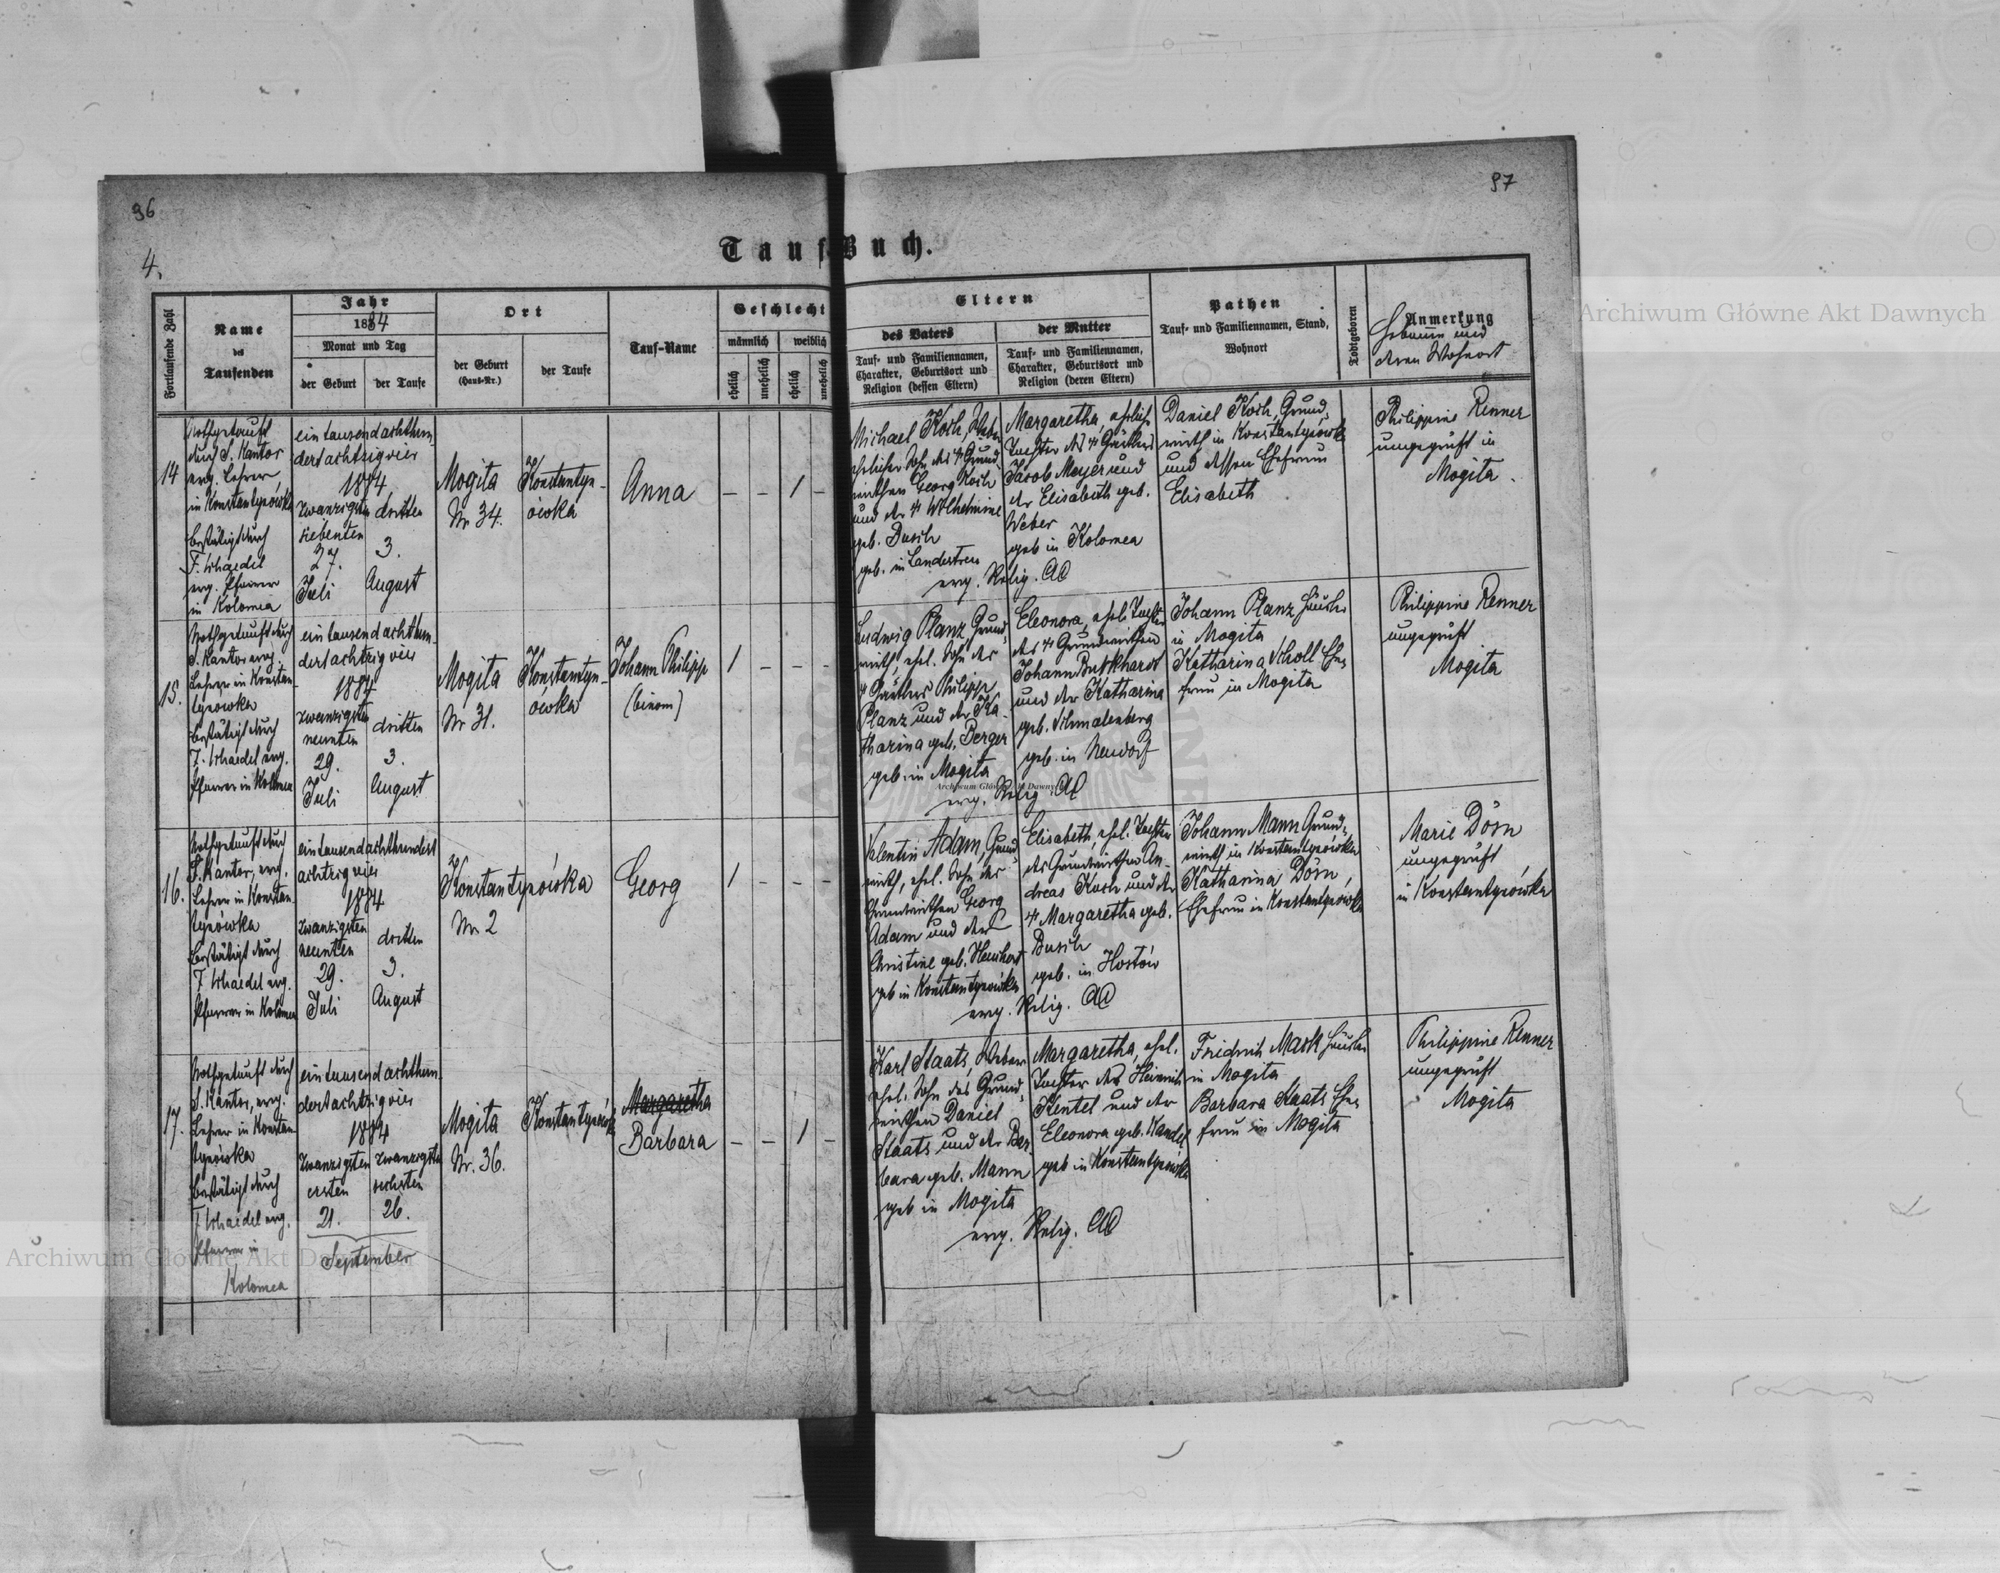 96
97
4.
Tauf-Buch.
Fortlaufende Zahl
Name
des
Taufenden
Jahr
1884
Monat und Tag
der Geburt
der Taufe
Ort
der Geburt
(Haus-Nr.)
der Taufe
Tauf-Name
Geschlecht
männlich
weiblich
ehelich
unehelich
ehelich
unehelich
Eltern
des Vaters
Tauf- und Familiennamen,
Charakter, Geburtsort und
Religion (dessen Eltern)
der Mutter
Tauf- und Familiennamen,
Charakter, Geburtsort und
Religion (deren Eltern)
Pathen
Tauf- und Familiennamen, Stand,
Wohnort
Todtgeboren
Anmerkung
Hebamme und
deren Wohnort
14
Nothgetauft
durch S. Kantor
evg. Lehrer
in Konstantynówka
bestätigt durch
evg. Pfarrer
in Kolomea
eintausendachthun-
dertachtzigvier
1884
zwanzigsten
siebenten
27.
Juli
dritten
3.
August
Mogiła
Nr. 34.
Konstantyn-
ówka
Anna
– – 1 –
Michael Koch, Weber
ehelicher Sohn des † Grund-
wirthen Georg Koch
und der † Wilhelmine
geb. Busch
geb. in Landestreu
evg. Relig. AC
Margaretha, eheliche
Tochter des † Gärtlers
Jacob Mayer und
der Elisabeth geb.
Weber
geb in Kolomea
Daniel Koch, Grund-
wirth in Konstantynówka
und dessen Ehefrau
Elisabeth
Philippine Renner
ungeprüft in
Mogiła.
15.
Nothgetauft durch
S. Kantor evg.
Lehrer in Konstan-
tynówka
bestätigt durch
Pfarrer in Kolomea
eintausendachthun-
dertachtzigvier
1884
zwanzigsten
neunten
29.
Juli
dritten
3.
August
Mogiła
Nr 31.
Konstantyn-
ówka
Johann Philipp
(binom)
1 – – –
Ludwig Planz, Grund-
wirth, ehel. Sohn des
† Gärtlers Philipp
Planz und der Ka-
tharina geb. Berger
geb. in Mogiła
evg. Relig. AC
Eleonora, ehel. Tochter
des † Grundwirthen
Johann Burkhardt
und der Katharina
geb. Schmalenberg
geb. in Neudorf
Johann Planz Häusler
in Mogiła
Katharina Scholl Ehe-
frau in Mogiła
Philippine Renner
ungeprüft
Mogiła
16.
Nothgetauft durch
S. Kantor, evg.
Lehrer in Konstan-
tynówka
bestätigt durch
Pfarrer in Kolomea
eintausendachthundert
achtzigvier
1884
zwanzigsten
neunten
29.
Juli
dritten
3.
August
Konstantynówka
Nr 2
Georg
1 – – –
Valentin Adam, Grund-
wirth, ehel. Sohn des
Grundwirthen Georg
Adam und der
Christine geb.
geb in Konstantynówka
evg. Relig. AC
Elisabeth, ehel. Tochter
des Grundwirthen An-
dreas Koch und der
† Margaretha geb.
Busch
geb. in Hostów
Johann Mann Grund-
wirth in Konstantynówka
Katharina Dörn,
Ehefrau in Konstantynówka
Marie Dörn
ungeprüft
in Konstantynówka
17.
Nothgetauft durch
S. Kantor, evg.
Lehrer in Konstan-
tynówka
bestätigt durch
Pfarrer in
Kolomea
eintausendachthun-
dertachtzigvier
1884
zwanzigsten
ersten
21.
zwanzigsten
sechsten
26.
September
Mogiła
Nr. 36.
Konstantynówka
Margaretha
Barbara
– – 1 –
Karl Staats, Weber
ehel. Sohn des Grund-
wirthen Daniel
Staats und der Bar-
bara geb. Mann
geb in Mogiła
evg. Relig. AC
Margaretha, ehel.
Tochter des Heinrich
Kentel und der
Eleonora geb.
geb in Konstantynówka
Fridrich Mark Häusler
in Mogiła
Barbara Staats Ehe-
frau in Mogiła
Philippine Renner
ungeprüft
Mogiła
Archiwum Główne Akt Dawnych
Archiwum Główne Akt Dawnych
Archiwum Główne Akt Dawnych